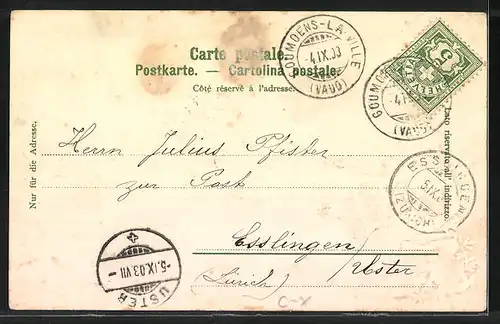 Carte postale.
Postkarte. — Cartolina postale.
Côté réservé à l'adresse.
Nur für die Adresse.
Lato riservato all' indirizzo.
GOUMOENS-LA-VILLE
-4.IX.03
(VAUD)
HELVETIA
5
GOUMOENS
-4.I
(VAUD)
ESSLINGEN
5.IX.
(ZÜRICH)
Herrn Julius Pfister
zur Post
Esslingen
/Uster
(Zürich)
-5.IX.03.VII-
USTER
C-X